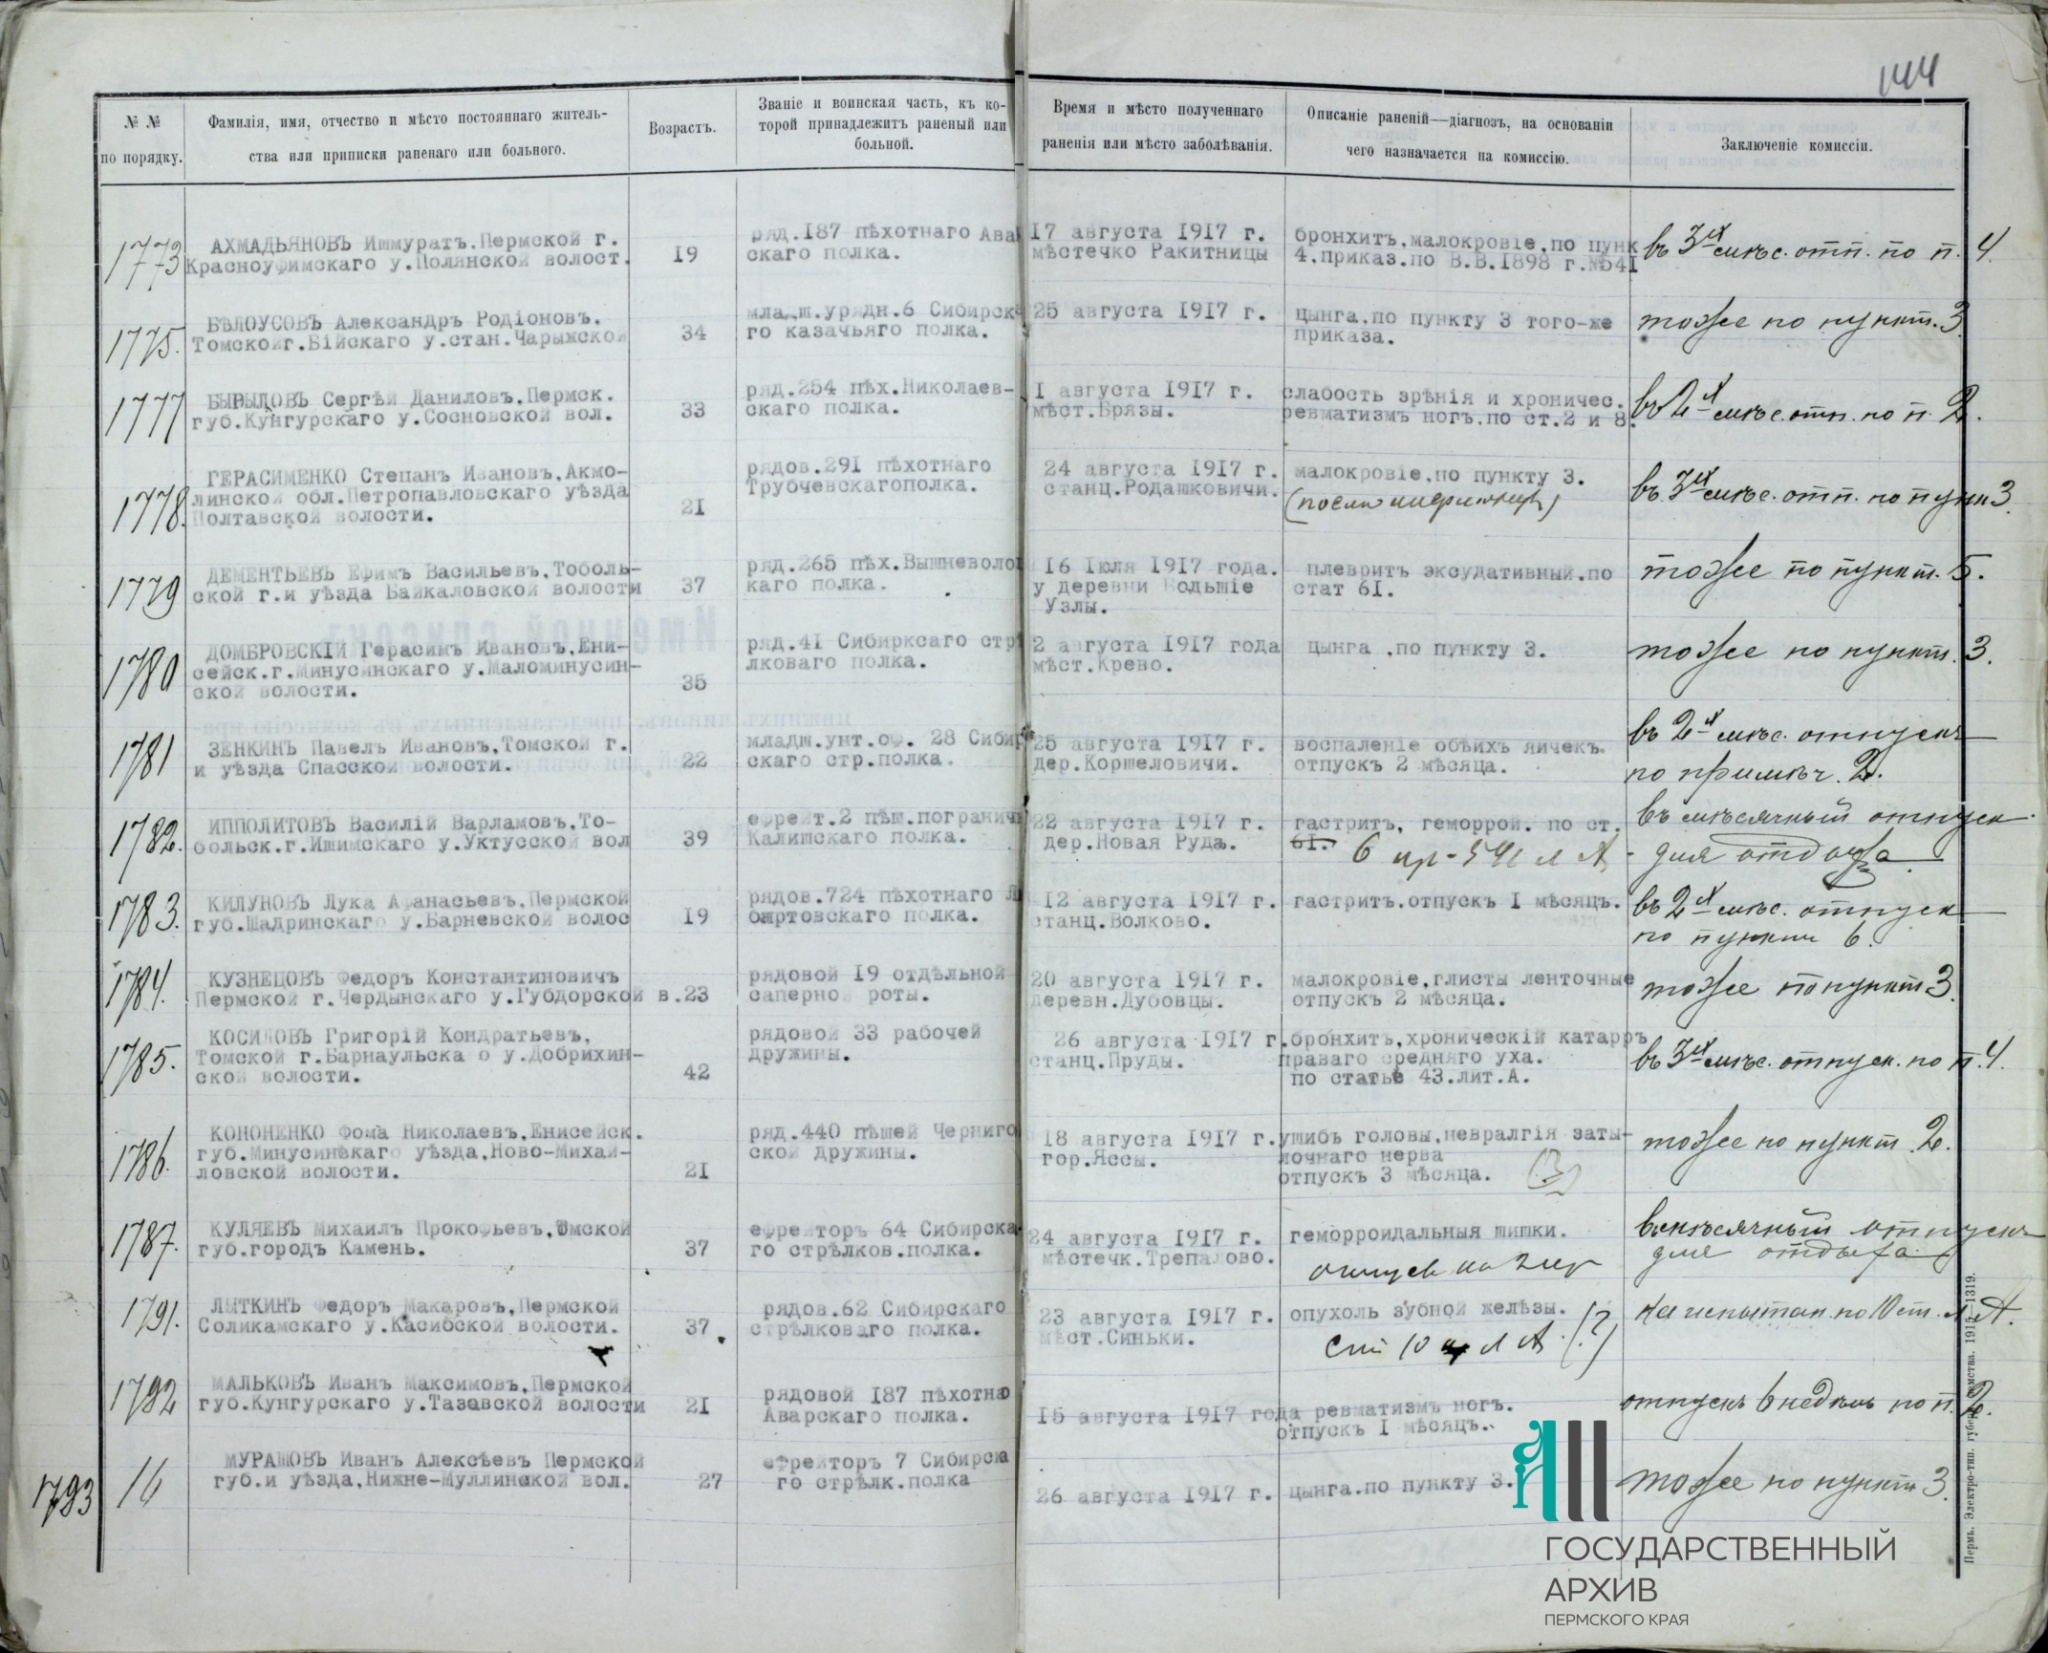 144
№ №
по порядку.
Фамилія, имя, отчество и мѣсто постояннаго житель-
ства или приписки раненаго или больного.
Возрастъ.
Званіе и воинская часть, къ ко-
торой принадлежитъ раненый или
больной.
Время и мѣсто полученнаго
раненія или мѣсто заболѣванія.
Описаніе раненій—діагнозъ, на основаніи
чего назначается на комиссію.
Заключеніе комиссіи.
1773
АХМАДЬЯНОВЪ Ишмуратъ.Пермской г.
Красноуфимскаго у.Полянской волост.
19
ряд.187 пѣхотнаго Ава
скаго полка.
17 августа 1917 г.
мѣстечко Ракитницы
бронхитъ.малокровіе.по пунк
4.приказ.по В.В.1898 г.№541
въ 3х мѣс. отп. по п. 4.
1775.
БѢЛОУСОВЪ Александръ Родіоновъ.
Томскойг.Бійскаго у.стан.Чарышской
34
младш.урядн.6 Сибирск
го казачьяго полка.
25 августа 1917 г.
цынга.по пункту 3 того-же
приказа.
тоже по пункт. 3
1777
БЫРЫЛОВЪ Сергѣй Даниловъ.Пермск.
губ.Кунгурскаго у.Сосновской вол.
33
ряд.254 пѣх.Николаев-
скаго полка.
1 августа 1917 г.
мѣст.Брязы.
слабость зрѣнія и хроничес.
ревматизмъ ногъ.по ст.2 и 8.
въ 2х мѣс. отп. по п. 2.
1778.
ГЕРАСИМЕНКО Степанъ Ивановъ.Акмо-
линской обл.Петропавловскаго уѣзда
Полтавской волости.
21
рядов.291 пѣхотнаго
Трубчевскагополка.
24 августа 1917 г.
станц.Родашковичи.
малокровіе.по пункту 3.
въ 3х мѣс. отп. по пунк 3.
1779
ДЕМЕНТЬЕВЪ Ефимъ Васильевъ.Тоболь-
ской г.и уѣзда Байкаловской волости
37
ряд.265 пѣх.Вышневоло
каго полка.
16 Іюля 1917 года.
у деревни Большіе
Узлы.
плевритъ эксудативный.по
стат 61.
тоже по пункт. 5.
1780
ДОМБРОВСКІЙ Герасимъ Ивановъ.Ени-
сейск.г.Минусинскаго у.Маломинусин-
ской волости.
35
ряд.41 Сибирксаго стр
лковаго полка.
2 августа 1917 года
мѣст.Крево.
цынга .по пункту 3.
тоже по пункт. 3.
1781
ЗЕНКИНЪ Павелъ Ивановъ.Томской г.
и уѣзда Спасской волости.
22
младш.унт.оф. 28 Сибир
скаго стр.полка.
25 августа 1917 г.
дер.Коршеловичи.
воспаленіе обѣихъ яичекъ.
отпускъ 2 мѣсяца.
въ 2х мѣс. отпускъ
по примѣч. 2.
1782.
ИППОЛИТОВЪ Василій Варламовъ.То-
больск.г.Ишимскаго у.Уктусской вол
39
ефрейт.2 пѣш.погранич
Калишскаго полка.
22 августа 1917 г.
дер.Новая Руда.
гастритъ, геморрой. по ст.
61. 6 пр - 541 л А
въ мѣсячный отпуск
для отдыха
1783.
КИЛУНОВЪ Лука Афанасьевъ.Пермской
губ.Шадринскаго у.Барневской волос
19
рядов.724 пѣхотнаго Л
сбартовскаго полка.
12 августа 1917 г.
станц.Волково.
гастритъ.отпускъ 1 мѣсяцъ.
въ 2х мѣс. отпуск
по пункт 6.
1784.
КУЗНЕЦОВЪ Федоръ Константиновичъ
Пермской г.Чердынскаго у.Губдорской в.23
рядовой 19 отдѣльной
саперной роты.
20 августа 1917 г.
деревн.Дубовцы.
малокровіе,глисты ленточные
отпускъ 2 мѣсяца.
тоже по пункт 3.
1785.
КОСИЛОВЪ Григорій Кондратьевъ.
Томской г.Барнаульска о у.Добрихин-
ской волости.
42
рядовой 33 рабочей
дружины.
26 августа 1917 г.
станц.Пруды.
бронхитъ,хроническій катарръ
праваго средняго уха.
по статьѣ 43.лит.А.
въ 3х мѣс. отпуск. по п. 4.
1786.
КОНОНЕНКО Фома Николаевъ.Енисейск.
губ.Минусинскаго уѣзда.Ново-Михай-
ловской волости.
21
ряд.440 пѣшей Черниго
ской дружины.
18 августа 1917 г.
гор.Яссы.
ушибъ головы.невралгія заты-
лочнаго нерва
отпускъ 3 мѣсяца.
тоже по пункт. 2.
1787.
КУЛЯЕВЪ Михаилъ Прокофьевъ.Томской
губ.городъ Камень.
37
ефрейторъ 64 Сибирска
го стрѣлков.полка.
24 августа 1917 г.
мѣстечк.Трепалово.
геморроидальныя шишки.
отпускъ на 2 мѣс
въ мѣсячный отпускъ
для отдыха
1791.
ЛЫТКИНЪ Федоръ Макаровъ.Пермской
Соликамскаго у.Касибской волости.
37
рядов.62 Сибирскаго
стрѣлковаго полка.
23 августа 1917 г.
мѣст.Синьки.
опухоль зубной желѣзы.
Ст 10 л А. (?)
на испытан. по 10 ст. л. А.
1792
МАЛЬКОВЪ Иванъ Максимовъ.Пермской
губ.Кунгурскаго у.Тазовской волости
21
рядовой 187 пѣхотно
Аварскаго полка.
15 августа 1917 года
ревматизмъ ногъ.
отпускъ 1 мѣсяцъ.
отпускъ 6 недѣль по п. 2.
1793
16
МУРАШОВЪ Иванъ Алексѣевъ Пермской
губ.и уѣзда.Нижне-Муллинской вол.
27
ефрейторъ 7 Сибирска
го стрѣлк.полка
26 августа 1917 г.
цынга.по пункту 3.
тоже по пункт 3.
ГОСУДАРСТВЕННЫЙ
АРХИВ
ПЕРМСКОГО КРАЯ